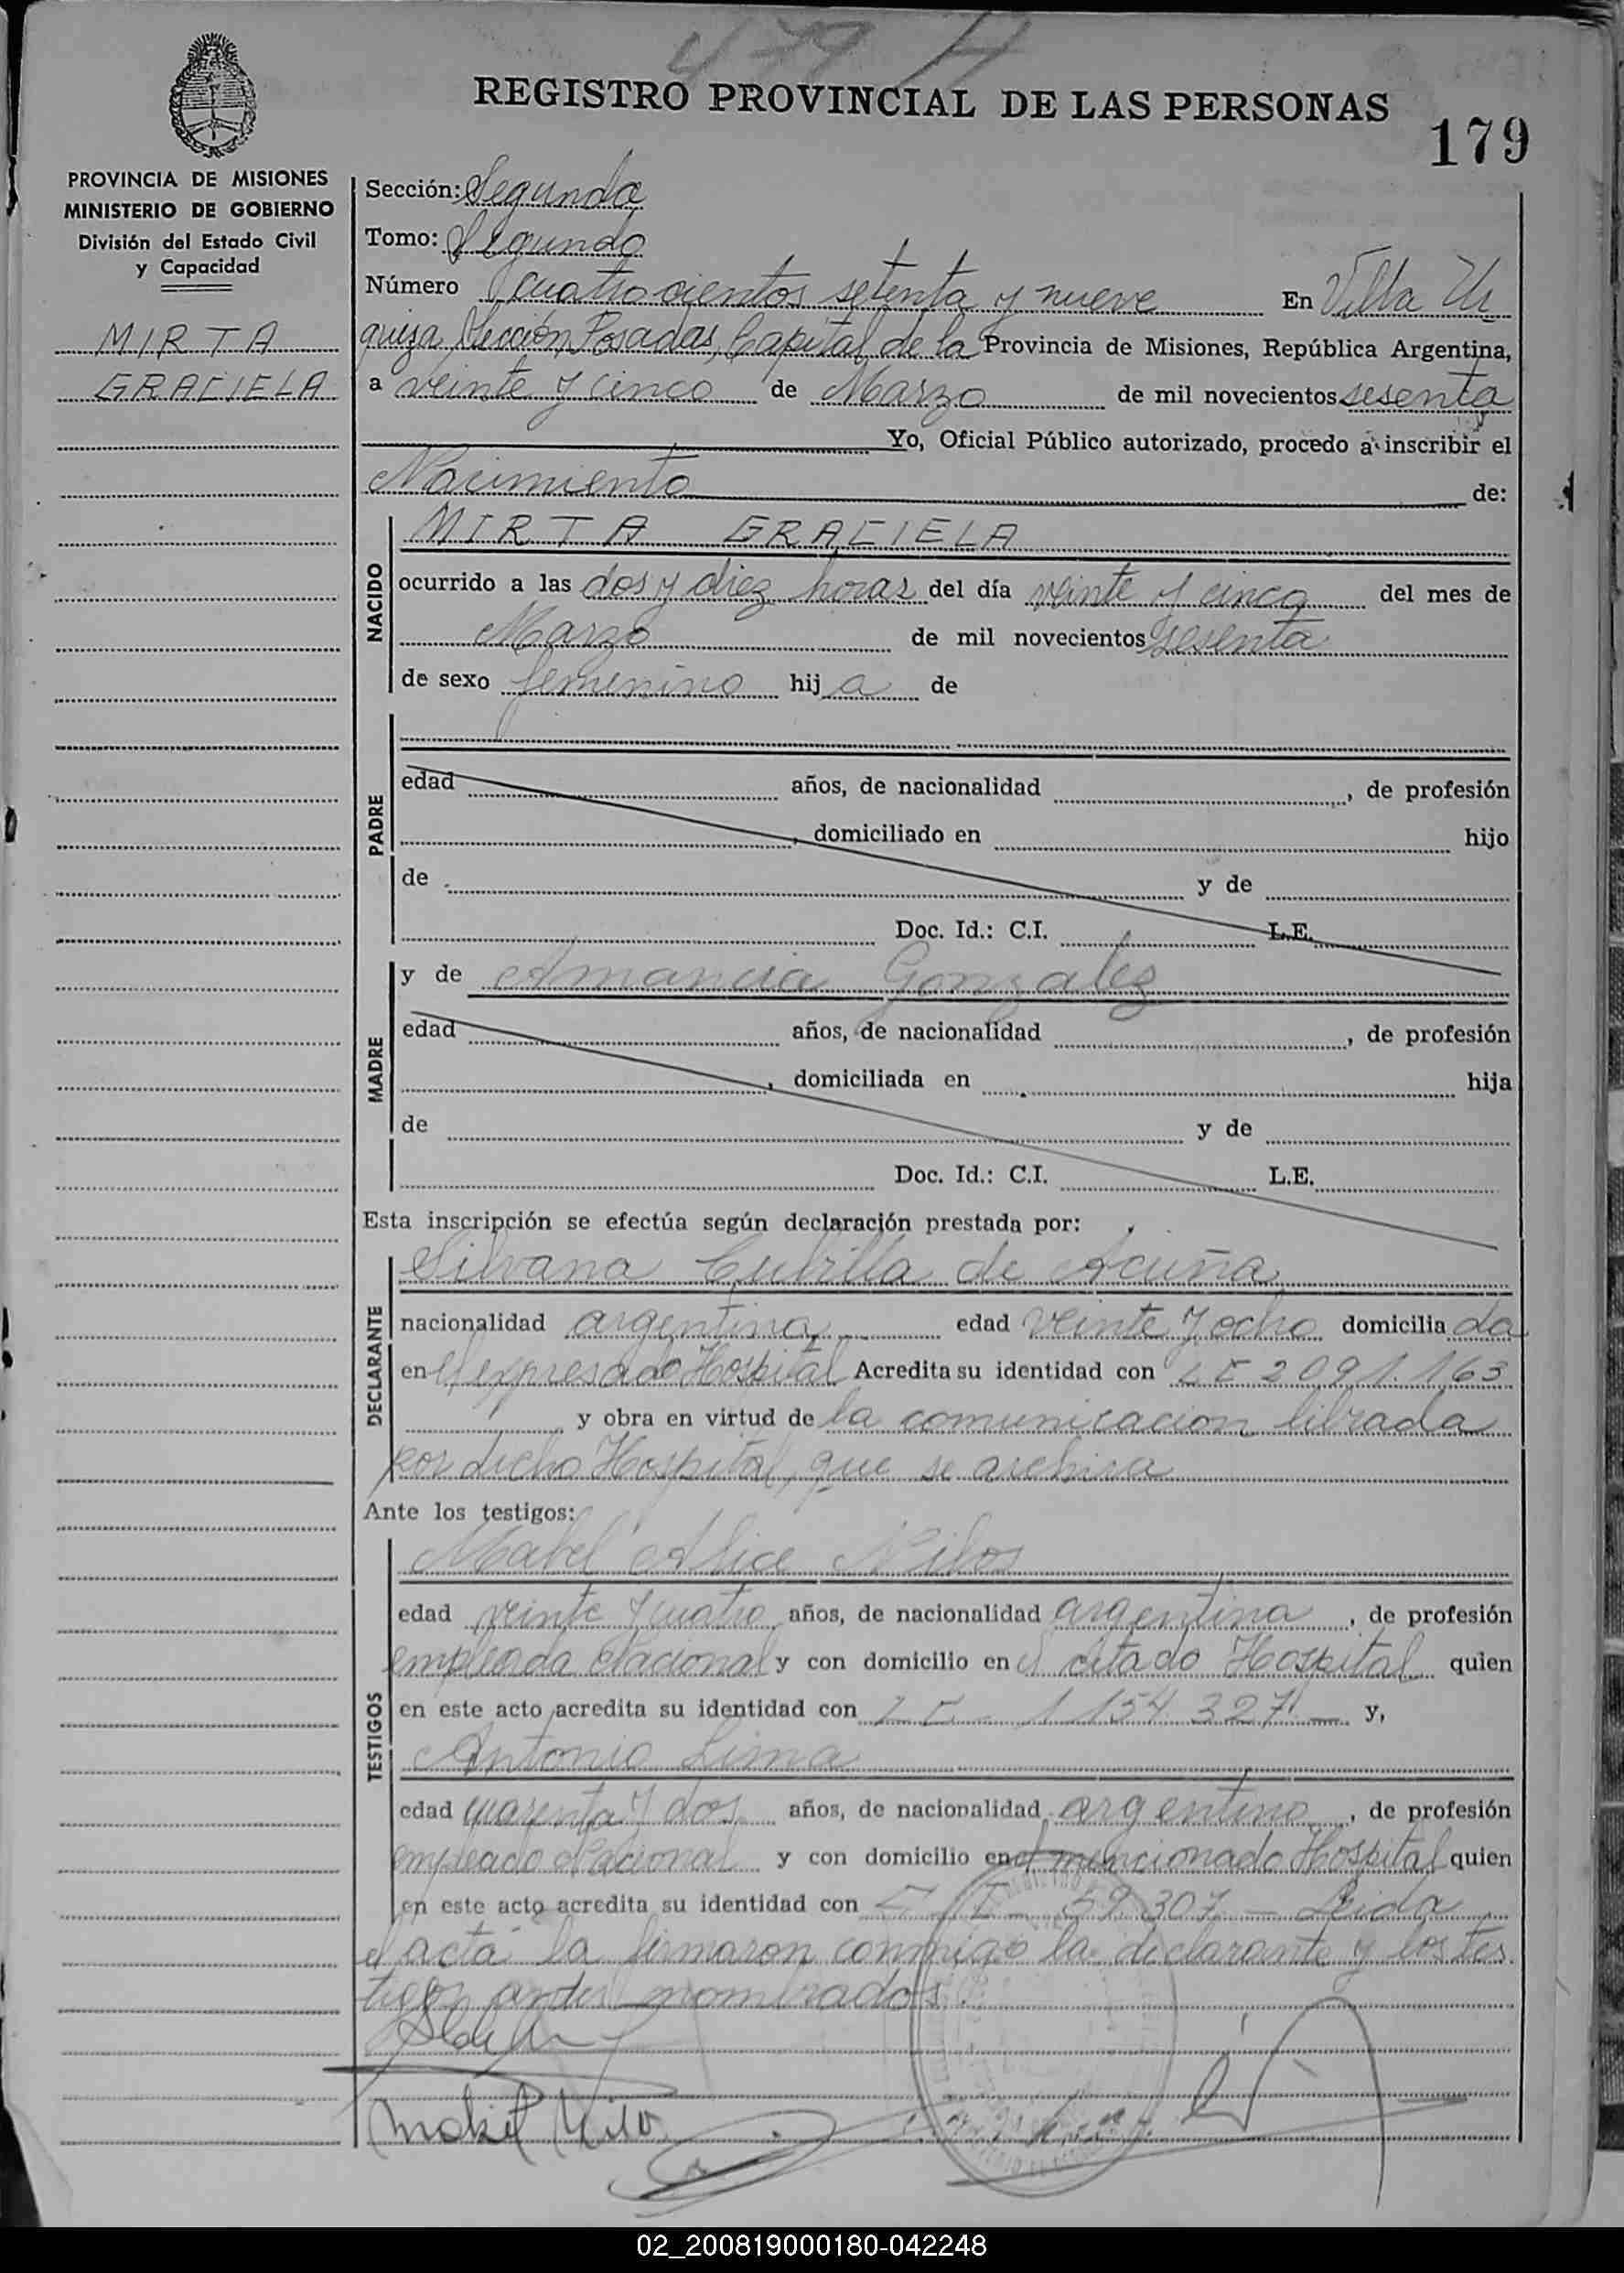 479 H
REGISTRO PROVINCIAL DE LAS PERSONAS
179
PROVINCIA DE MISIONES
MINISTERIO DE GOBIERNO
División del Estado Civil
y Capacidad
MIRTA
GRACIELA
Sección: Segunda
Tomo: Segundo
Número cuatrocientos setenta y nueve En Villa Ur
quiza Sección Posadas, Capital de la Provincia de Misiones, República Argentina,
a veinte y cinco de Marzo de mil novecientos sesenta
Yo, Oficial Público autorizado, procedo a inscribir el
Nacimiento de:
NACIDO
MIRTA GRACIELA
ocurrido a las dos y diez horas del día veinte y cinco del mes de
Marzo de mil novecientos sesenta
de sexo femenino hija de
PADRE
edad años, de nacionalidad , de profesión
, domiciliado en hijo
de y de
Doc. Id.: C.I. L.E.
MADRE
y de Amancia Gonzalez
edad años, de nacionalidad , de profesión
, domiciliada en hija
de y de
Doc. Id.: C.I. L.E.
Esta inscripción se efectúa según declaración prestada por:
DECLARANTE
Silvana Cubilla de Acuña
nacionalidad argentina edad veinte y ocho domiciliada
en el expresado Hospital Acredita su identidad con LE 2091.163
y obra en virtud de la comunicacion librada
por dicho Hospital, que se archiva
Ante los testigos:
TESTIGOS
Mabel Alice Nilos
edad veinte y cuatro años, de nacionalidad argentina , de profesión
empleada Nacional y con domicilio en el citado Hospital quien
en este acto acredita su identidad con 1154.327 — y,
Antonio Lima
edad cuarenta y dos años, de nacionalidad argentino , de profesión
empleado Nacional y con domicilio en el mencionado Hospital quien
en este acto acredita su identidad con 59.307 — Leida
el acta la firmaron conmigo la declarante y los tes
tigos antes nombrados.
02_200819000180-042248